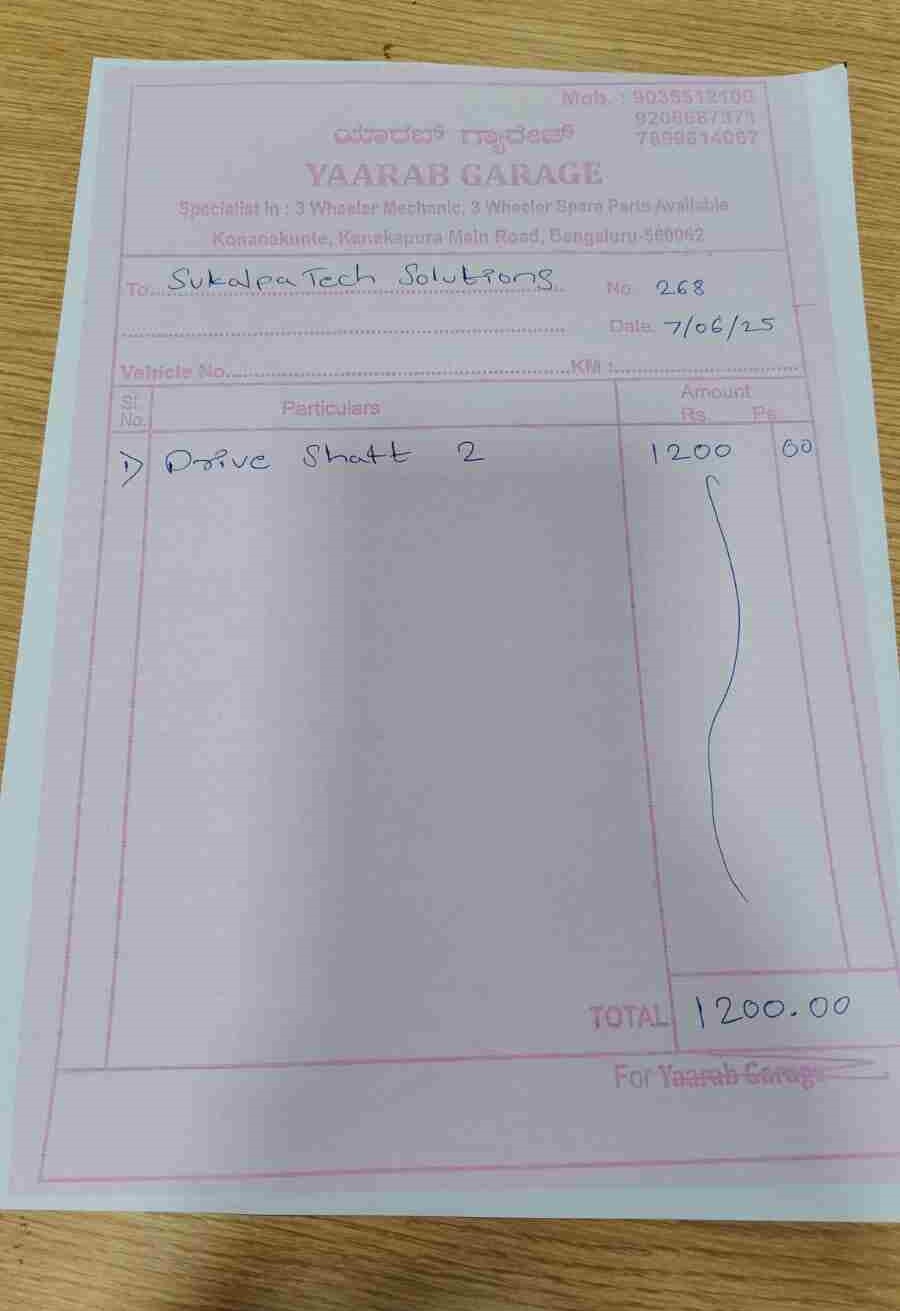 Mob. : 9035512100
9206667373
7899614067
ಯಾರಬ್ ಗ್ಯಾರೇಜ್
YAARAB GARAGE
Specialist in : 3 Wheeler Mechanic, 3 Wheeler Spare Parts Available
Konanakunte, Kanakapura Main Road, Bengaluru-560062
To Sukalpa Tech Solutions No. 268
Date. 7/06/25
Vehicle No. KM :
Sl. No. Particulars Amount Rs. Ps.
1) Drive Shaft 2 1200 00
TOTAL 1200.00
For Yaarab Garage